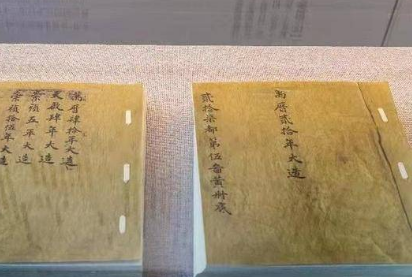 萬曆貳拾年大造
貳拾柒都第伍啚黃冊底
萬曆肆拾年大造
天啟年大造
崇禎五年大造
崇禎拾伍年大造